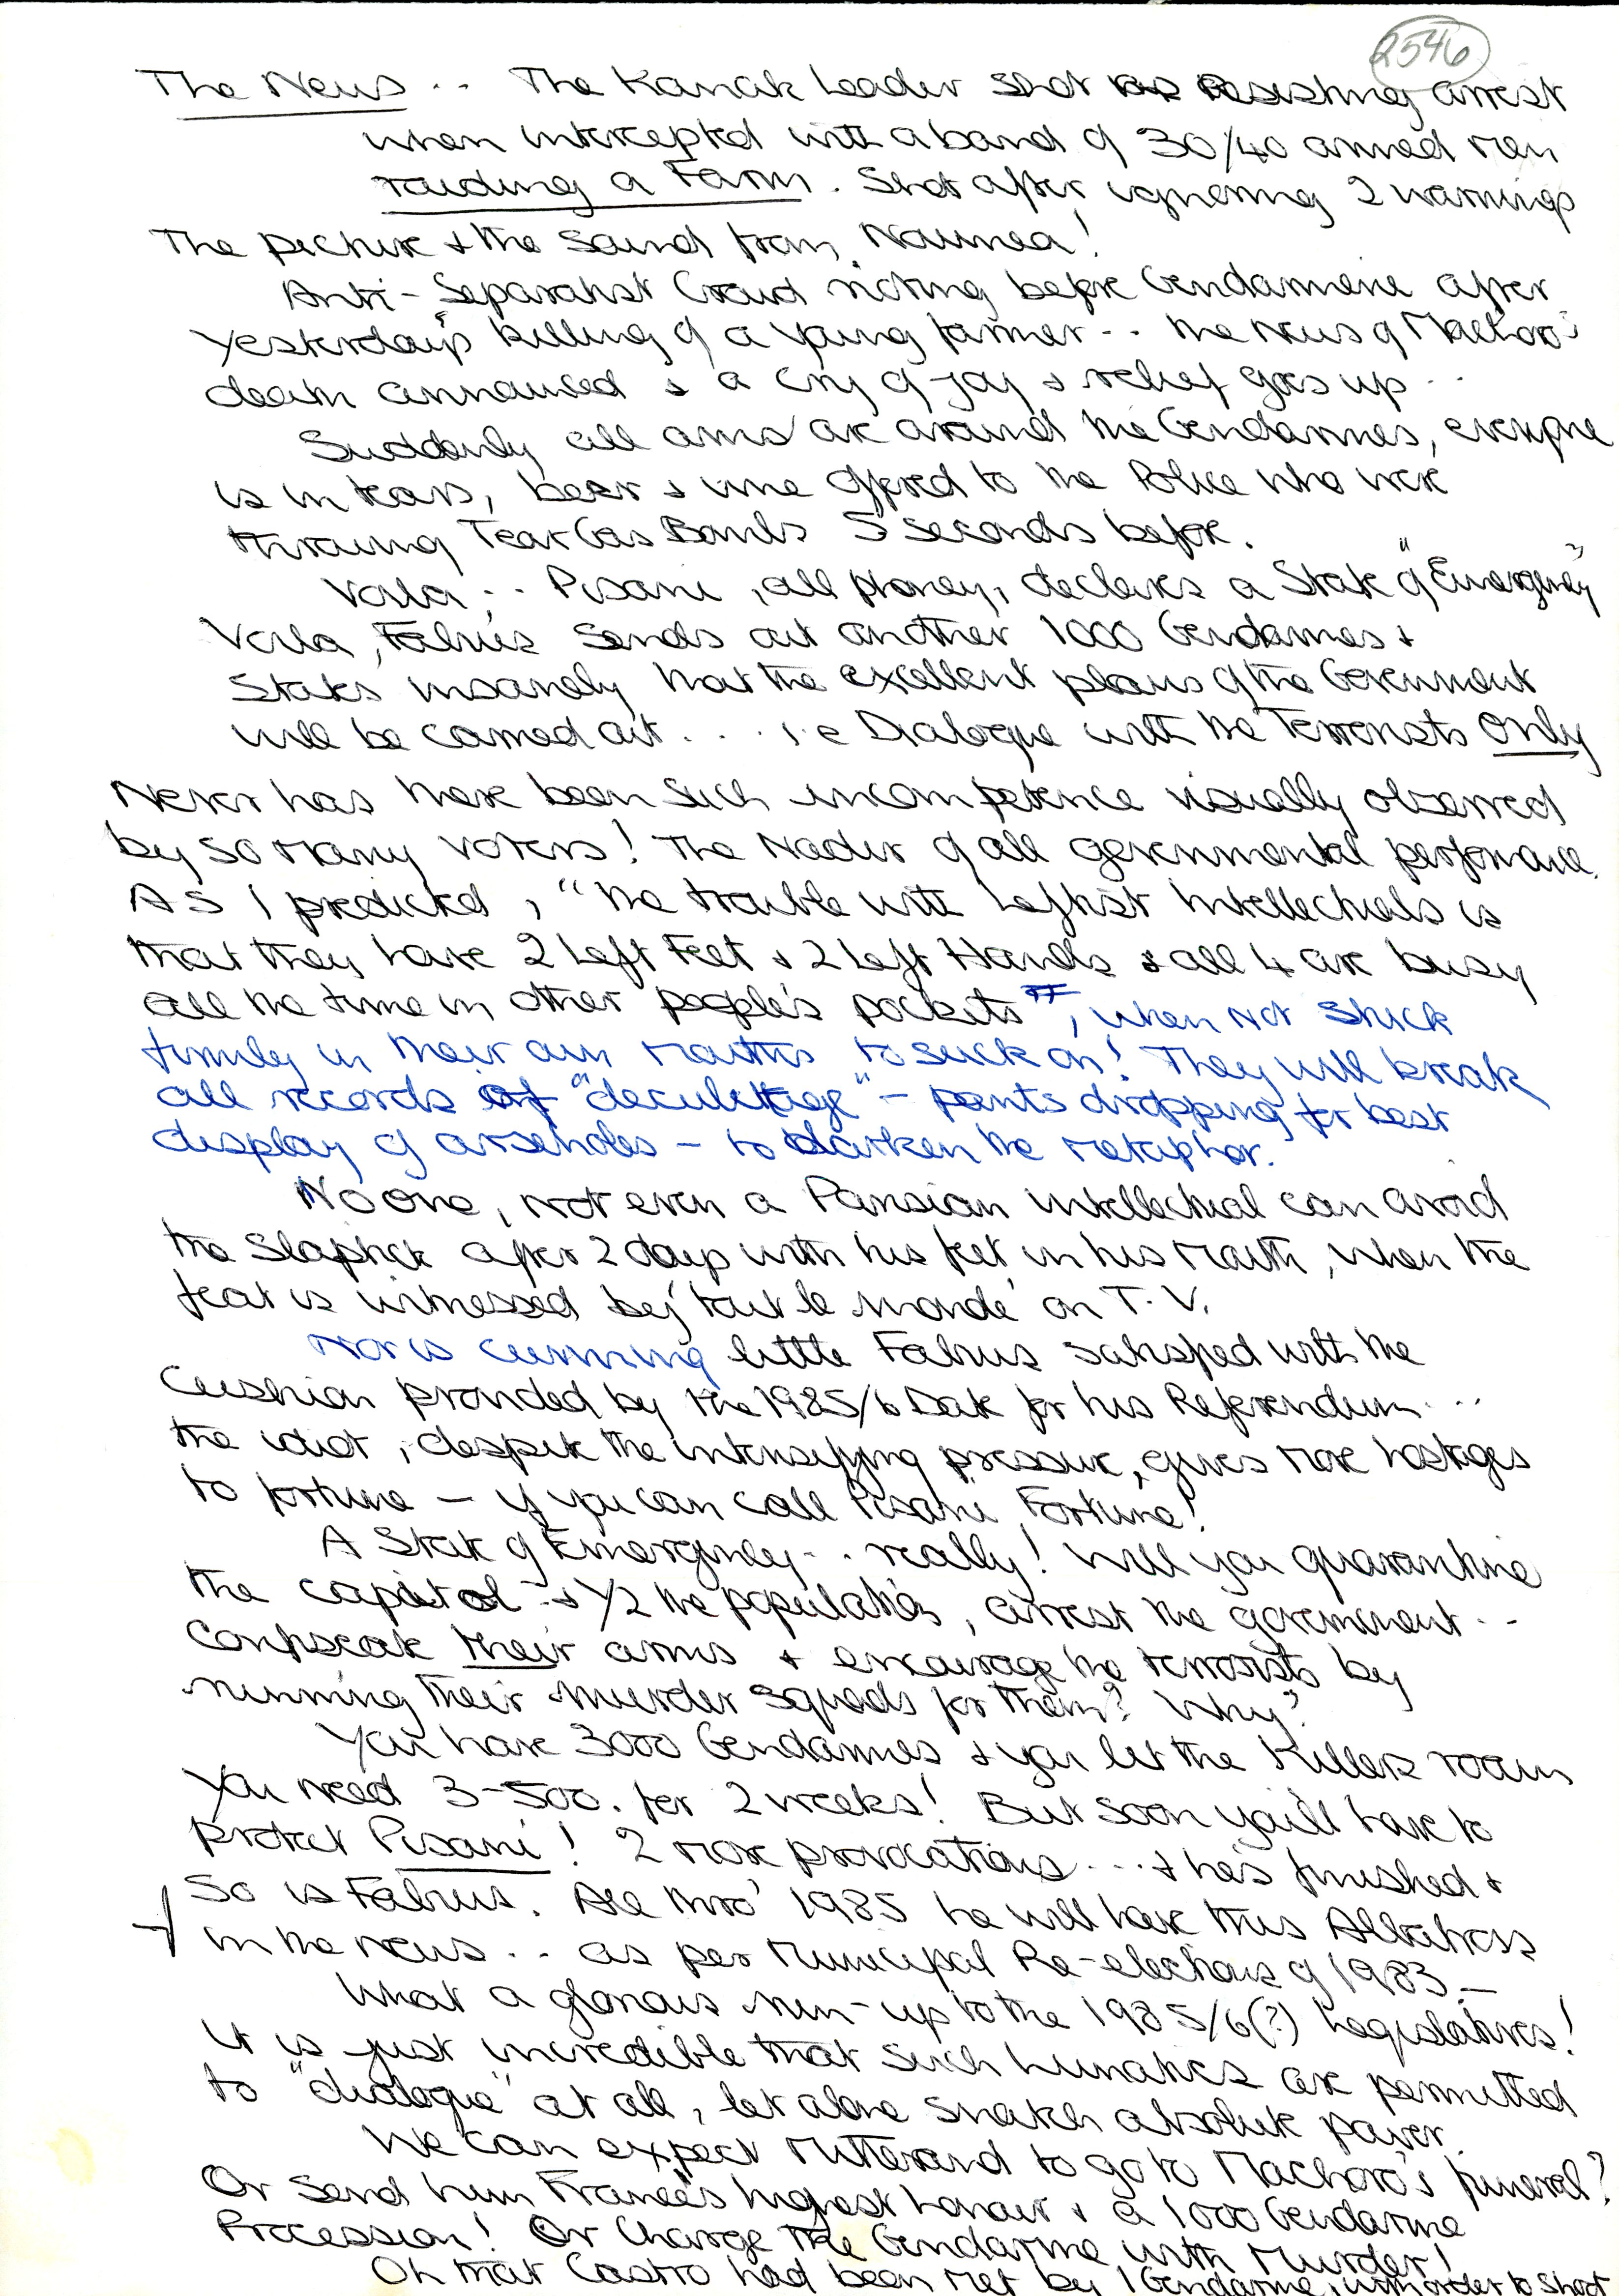 2546
The News .. The Kanak Leader shot resisting arrest
when intercepted with a band of 30/40 armed men
raiding a Farm. Shot after ignering 2 warnings
The picture & the sound from Noumea!
Anti-Separatist Crowd rioting before Gendarmerie after
yesterday's killing of a young farmer .. the news of Machoro's
death announced & a cry of joy & relief goes up ..
Suddenly all arms are around the Gendarmes, everyone
is in tears, beer & wine offered to the Police who were
throwing Tear Gas Bombs 5 seconds before.
Voila .. Pisani, all phoney, declares a State of "Emergency"
Voila, Fabius sends out another 1000 Gendarmes &
States insanely that the excellent plans of the Government
will be carried out .... i.e Dialogue with the Terrorists only
Never has there been such incompetence visually observed
by so many voters! The Nadir of all governmental performance.
As I predicted, "the trouble with Leftist Intellectuals is
that they have 2 Left Feet & 2 Left Hands & all 4 are busy
all the time in other people's pockets", when not stuck
firmly in their own mouths to suck on! They will break
all records of "deculottage" - pants dropping for best
display of arseholes - to darken the metaphor.
No one, not even a Parisian intellectual can avoid
the slapstick after 2 days with his feet in his mouth, when the
feat is witnessed by 'tout le monde' on T.V.
Nor is cunning little Fabius satisfied with the
Cushion provided by the 1985/6 Date for his Referendum ...
the idiot, despite the intensifying pressure, gives more hostages
to fortune - if you can call Pisani, Fortune!
A State of Emergency .. really! Will you quarantine
the capitol & 1/2 the population, arrest the government ..
Confiscate their arms & encourage the terrorists by
running their murder squads for them? Why?
You have 3000 Gendarmes & you let the Killers roam
You need 3-500. for 2 weeks! But soon you'll have to
protect Pisani! 2 more provocations ... & he's finished &
so is Fabius. All thro' 1985 he will have this Albatross
in the news .. as per Municipal Re-elections of 1983 -
What a glorious run-up to the 1985/6(?) Legislatives!
It is just incredible that such Lunatics are permitted
to "dialogue" at all, let alone snatch absolute power.
We can expect Mitterand to go to Machoro's funeral?
Or send him France's highest honour & a 1000 Gendarme
Procession! Or Charge the Gendarme with Murder!
Oh that Castro had been met by 1 Gendarme, with order to shoot